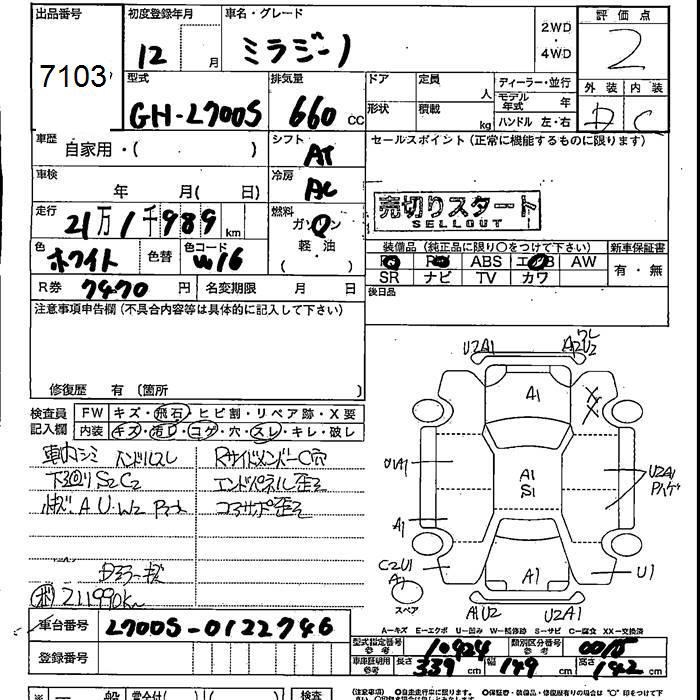 出品番号 初度登録年月 車名・グレード 評価点
7103 12 月 ミラジーノ 2WD・4WD 2
型式 排気量 ドア 定員 人 ディーラー・並行 外装 内装
GH-L700S 660 CC 形状 積載 kg モデル年式 年 D C
ハンドル 左・右
車歴 自家用・( ) シフト AT セールスポイント (正常に機能するものに限ります)
車検 年 月( 日) 冷房 AC
売切りスタート
SELLOUT
走行 21万1千989 km 燃料 ガソリン
軽・油
( )
色 ホワイト 色替 色コード W16 装備品 (純正品に限り○をつけて下さい) 新車保証書
ABS AW 有・無
R券 7470 円 名変期限 月 日 SR ナビ TV カワ
後日品
注意事項申告欄 (不具合内容等は具体的に記入して下さい)
修復歴 有 (箇所 )
検査員 FW キズ・飛石・ヒビ割・リペア跡・X要
記入欄 内装 キズ・汚れ・コゲ・穴・スレ・キレ・破レ
車内シミ ハンドルスレ RサイドメンバーC穴
下廻り S2C2 エンドパネル歪ミ
コアサポ歪ミ
211990K
U2A1 A2U2
A1
A1
S1
A1 U2A1
A1
C2U1
A1 A1 U1
スペア A1U2 U2A1
A-キズ E-エクボ U-凹み W-補修跡 S-サビ C-腐食 XX-交換済
車台番号 L700S-0122746
登録番号
型式指定番号 参考 10924 類別区分番号 参考 0015
車庫証明用 参考 長さ 339 cm 幅 149 cm 高さ 142 cm